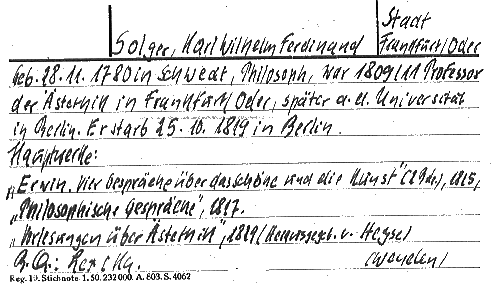 Stadt
Solger, Karl Wilhelm Ferdinand Frankfurt/Oder
geb. 28.11.1780 in Schwedt, Philosoph, war 1809/11 Professor
der Ästethik in Frankfurt/Oder, später a.d. Universität
in Berlin. Er starb 25.10.1819 in Berlin.
Hauptwerke:
„Erwin. Vier Gespräche über das Schöne und die Kunst" (2 Bde.), 1815,
„Philosophische Gespräche", 1817.
„Vorlesungen über Ästethik", 1829 (Herausgegeb. v. Heyse)
(wenden)
Reg. 19. Stichnote 1. 50. 232000. A. 603. S. 4062